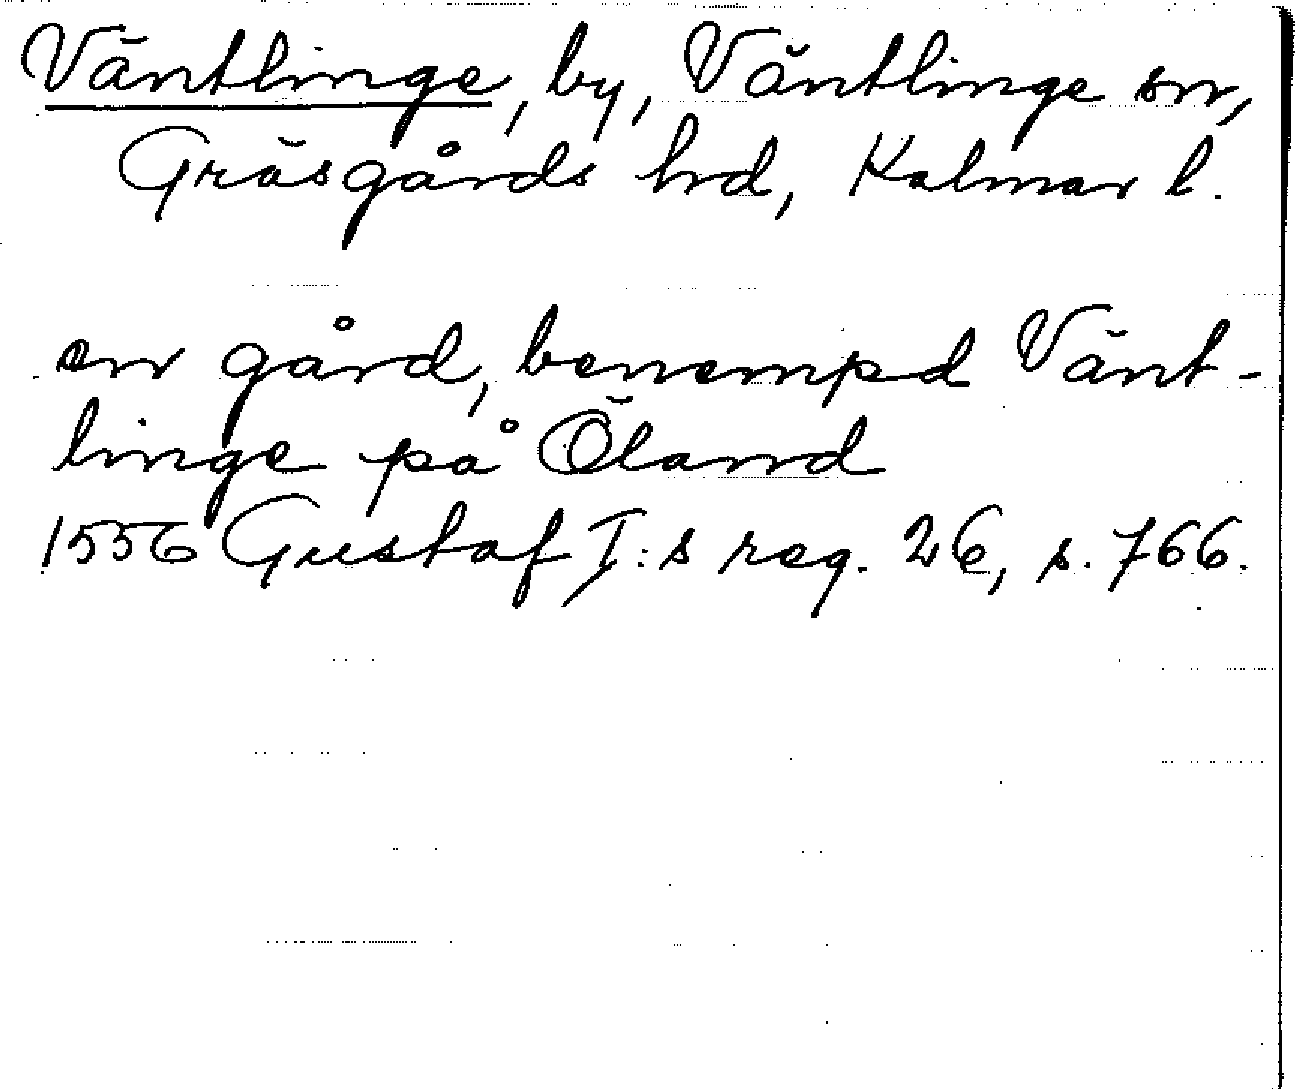 Väntlinge, by, Väntlinge sn,
Gräsgårds hd, Kalmar l.
en gård, benempd Vänt-
linge på Öland
1556 Gustaf I:s reg. 26, s. 766.